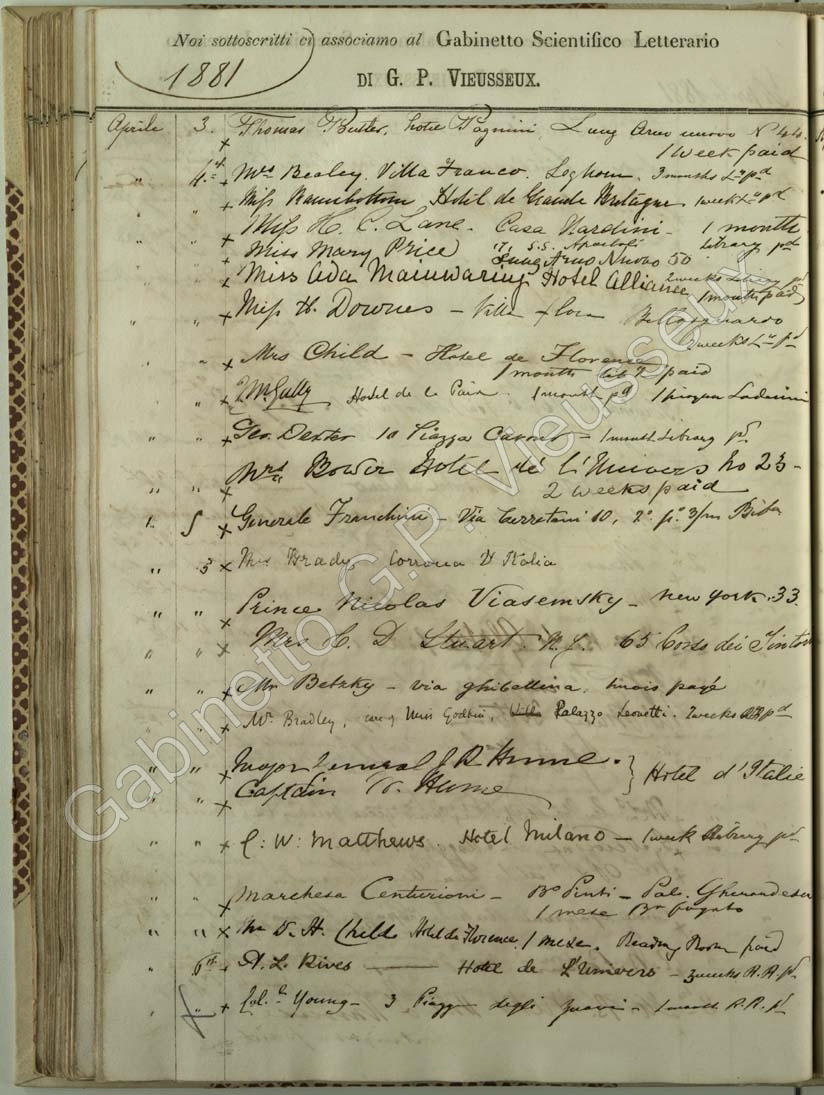 Noi sottoscritti ci associamo al Gabinetto Scientifico Letterario
1881
DI G. P. VIEUSSEUX.
Aprile 3. x Thomas Butler, hotel Pagnini, Lung Arno nuovo No 44.
1 Week paid
" 4th x Mrs Bealey. Villa Franco. Leghorn. 3 months Ly pd
" " x Miss Ramsbottom Hotel de Grande Bretagne. 1 week Ly pd
" " x Miss H. C. Lane. Casa Nardini - 1 month
" " x Miss Mary Price 17, S.S. Apostoli library pd
Lung Arno Nuovo 50
" " x Miss Ada Mainwaring Hotel Alliance 2 weeks Library pd
1 month paid
" " x Miss H. Downes - Villa Bellosguardo
2 weeks Ly pd
" " x Mrs Child - Hotel de Florence
1 month lib y paid
" " x McGully Hotel de la Paix. 1 month pd
" " x Geo. Dexter 10 Piazza Cavour - 1 month Library pd.
Mrs Bower Hotel de l'Univers No 23-
" " x 2 weeks paid
" 5 x Generale Franchini - Via Cerretani 10, 2o po 3/m
" 5 x Mrs Brady Corrona D Italia
" " x Prince Nicolas Viasemsky - New York. 33
" " x Mrs C. D. Stuart. N.Y. 65 Corso dei Tintori
" " x Mr Betzky - via ghibellina, payé
" " x Mr Bradley, care of Miss Palazzo Leonetti. 2 weeks RR pd
" " x Major General J. R. Hume. } Hotel d'Italie
" " x Captain W. Hume
" " x C: W: Matthews. Hotel Milano - 1 week library pd
" " x Marchesa Centurioni - Bo Pinti - Pal. Gherardesca
1 mese pagato
" " x Mr D. H. Child Hotel de Florence, 1 mese. Reading Room paid
" 6th x A. L. Rives - Hotel de L'Univers - 2 weeks R.R. pd
" " x Col. Young - 3 Piazza degli Zuavi - 1 month R.R. pd
Gabinetto G.P. Vieusseux